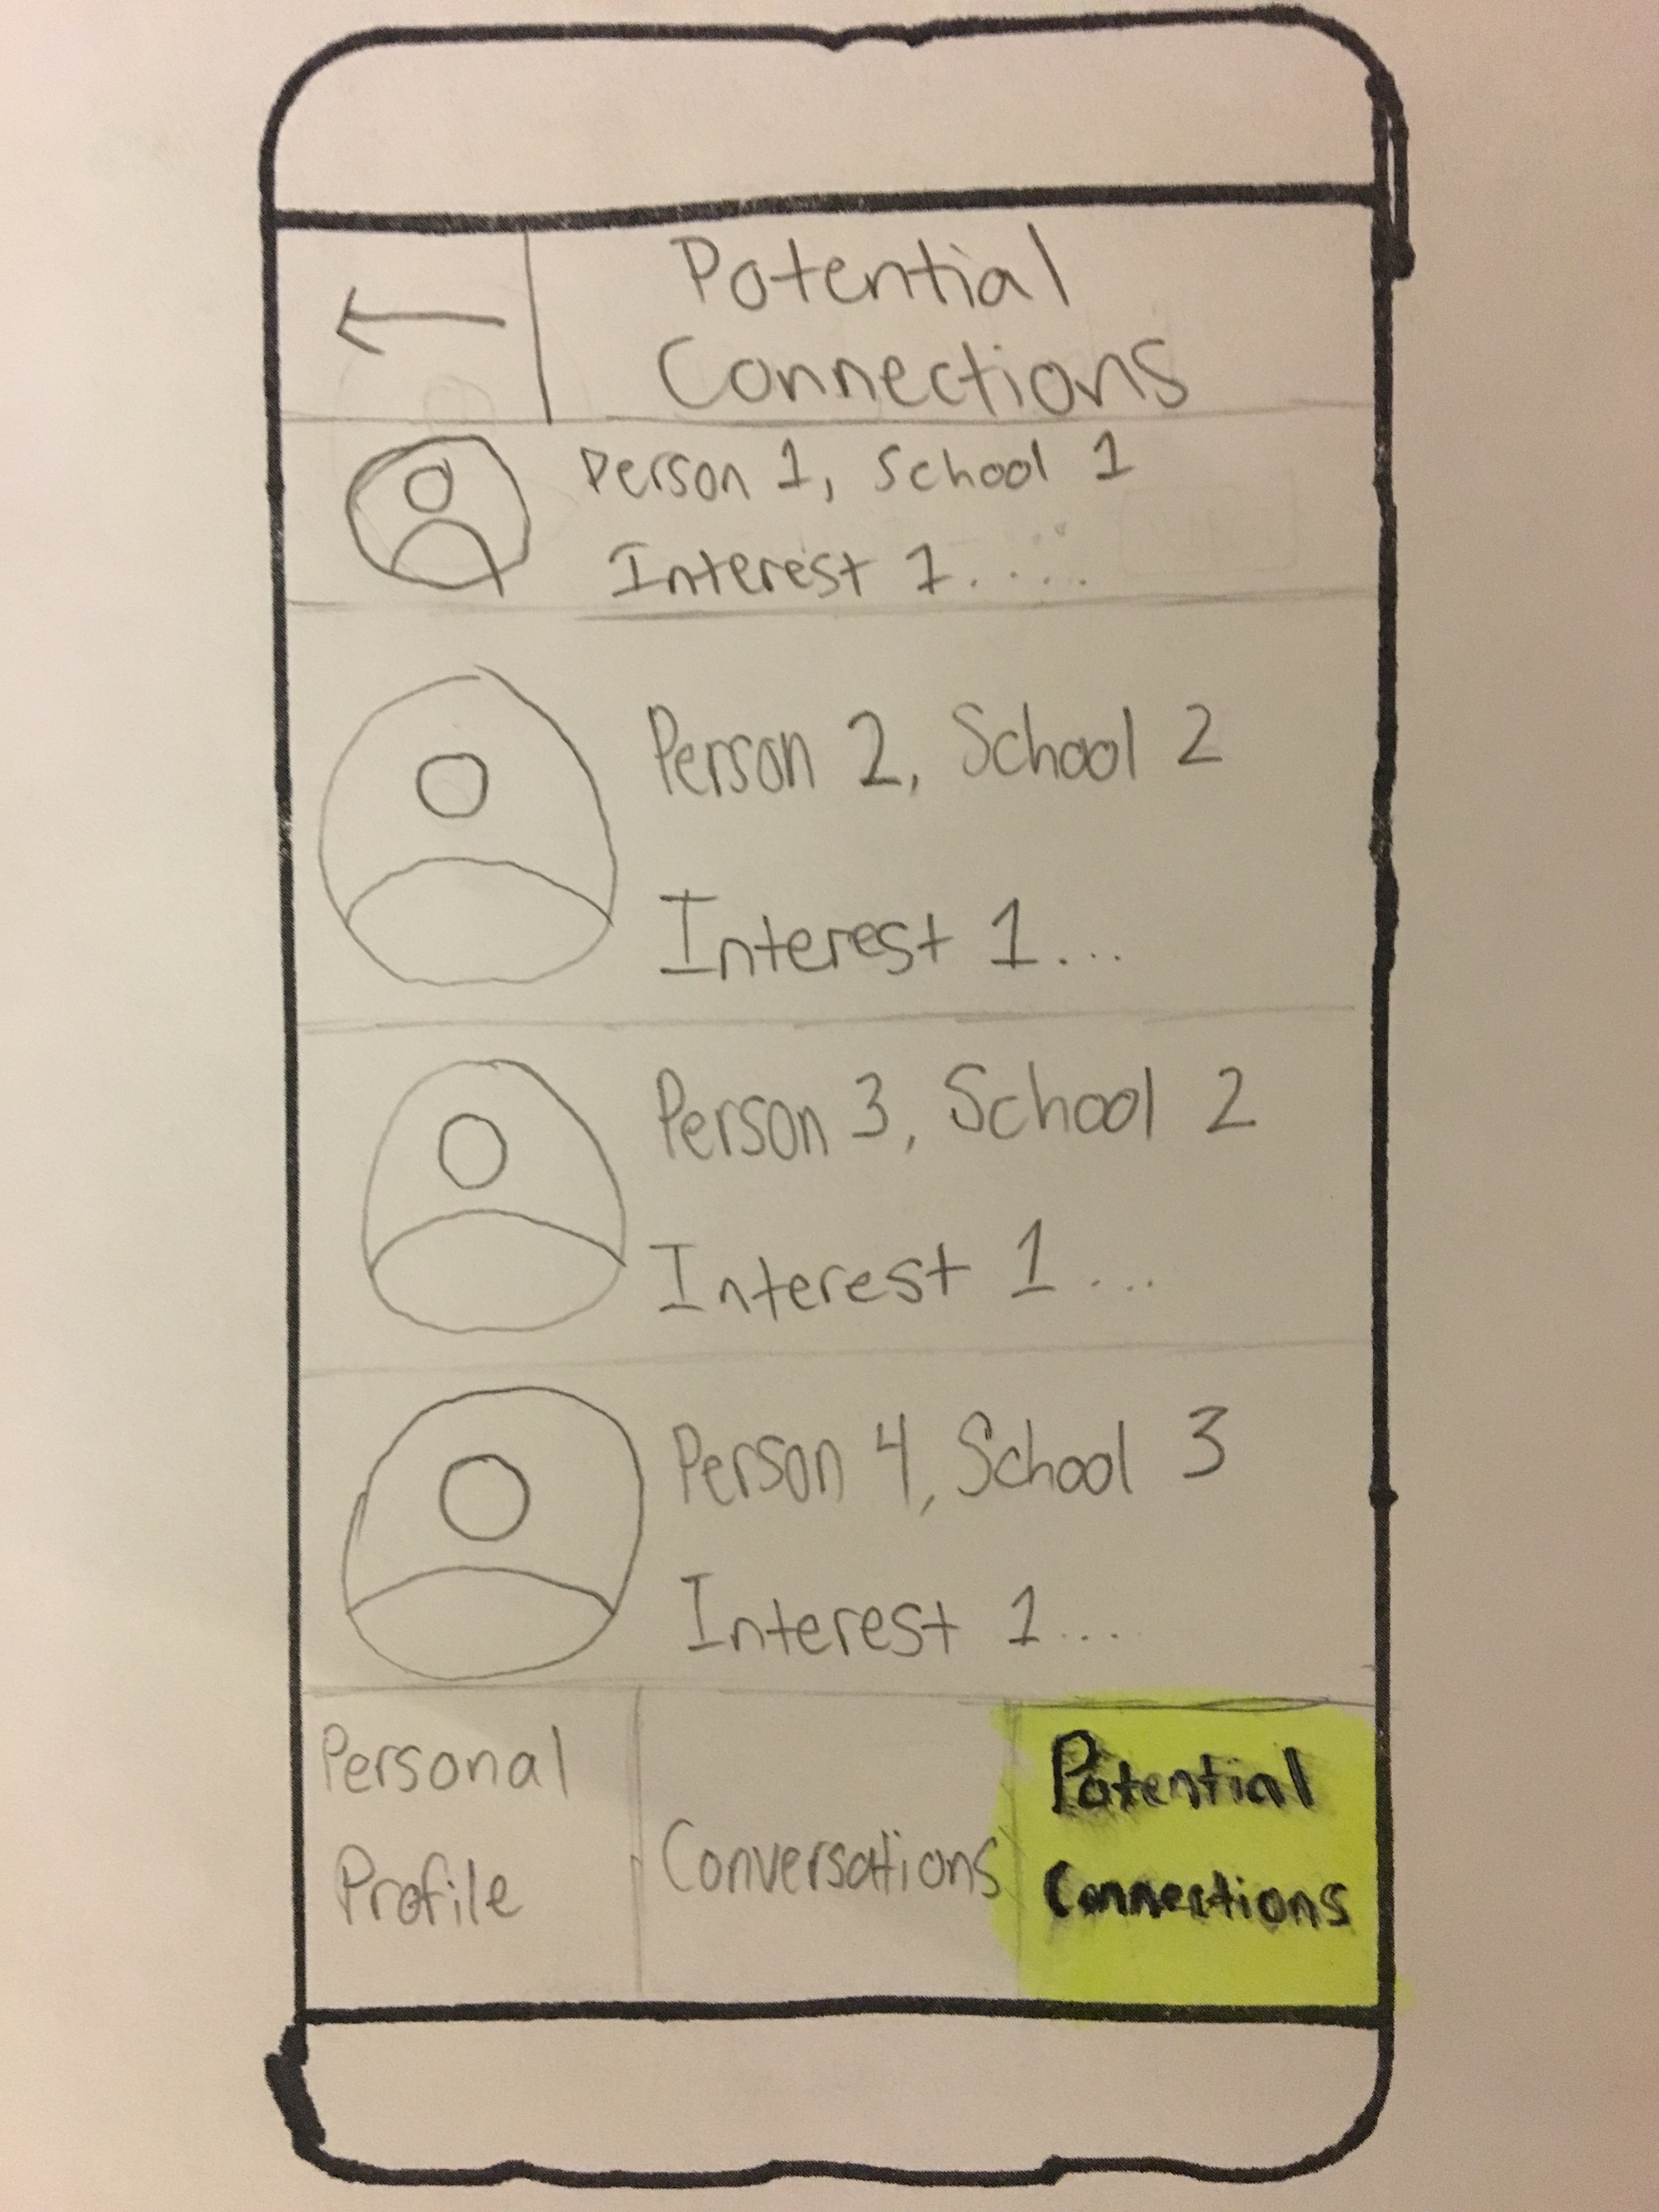 Potential
Connections
Person 1, School 1
Interest 1.....
Person 2, School 2
Interest 1...
Person 3, School 2
Interest 1...
Person 4, School 3
Interest 1...
Personal
Profile
Conversations
Potential
Connections